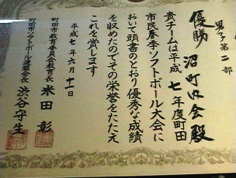 男子第二部
優勝 沼町内会殿
貴チームは平成七年度町田
市民春季ソフトボール大会に
おいて頭書のとおり優秀な成績
を収めたのでその栄誉をたたえ
これを賞します
平成七年六月十一日
町田市教育委員会教育長 米田彰
町田市ソフトボール連盟会長 渋谷守生